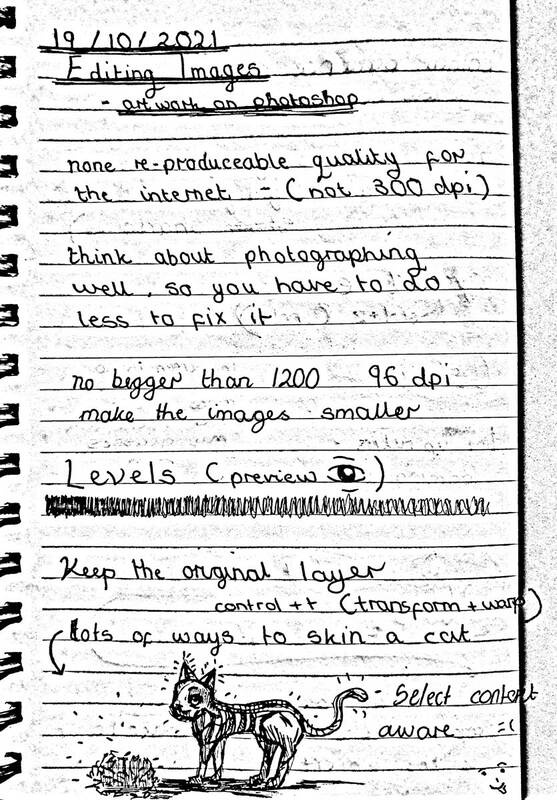 19/10/2021
Editing Images
- artwork on photoshop
none re-produceable quality for
the internet - (not 300 dpi)
think about photographing
well, so you have to do
less to fix it
no bigger than 1200 96 dpi
make the images smaller
Levels (preview)
Keep the original layer
control + t (transform + warp)
lots of ways to skin a cat
- Select content
aware :(